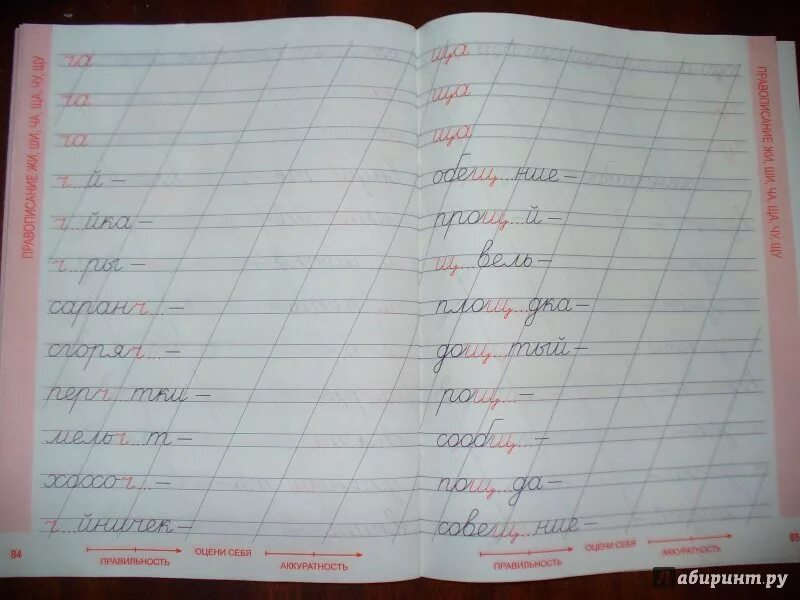 ПРАВОПИСАНИЕ ЖИ, ШИ, ЧА, ЩА, ЧУ, ЩУ
ча
ча
ча
ч...й –
ч...йка –
ч...ры –
саранч... –
сгоряч... –
перч...тки –
мельч...т –
хохоч... –
ч...йничек –
84
ПРАВИЛЬНОСТЬ
ОЦЕНИ СЕБЯ
АККУРАТНОСТЬ
ща
ща
ща
обещ...ние –
прощ...й –
щ...вель –
площ...дка –
дощ...тый –
рощ... –
сообщ... –
пощ...да –
совещ...ние –
ПРАВОПИСАНИЕ ЖИ, ШИ, ЧА, ЩА, ЧУ, ЩУ
ПРАВИЛЬНОСТЬ
ОЦЕНИ СЕБЯ
АККУРАТНОСТЬ
85
Лабиринт.ру